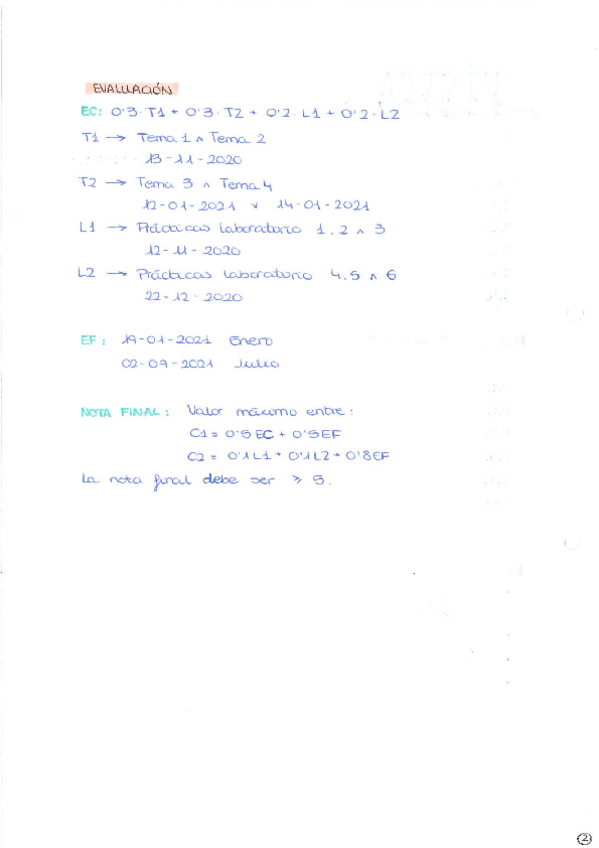 EVALUACIÓN
EC: 0'3·T1 + 0'3·T2 + 0'2·L1 + 0'2·L2
T1 → Tema 1 ∧ Tema 2
13-11-2020
T2 → Tema 3 ∧ Tema 4
12-01-2021 ∨ 14-01-2021
L1 → Prácticas laboratorio 1, 2 ∧ 3
12-11-2020
L2 → Prácticas laboratorio 4, 5 ∧ 6
22-12-2020
EF: 19-01-2021 Enero
02-07-2021 Julio
NOTA FINAL: Valor máximo entre:
C1 = 0'5 EC + 0'5 EF
C2 = 0'1 L1 + 0'1 L2 + 0'8 EF
La nota final debe ser ≥ 5.
2